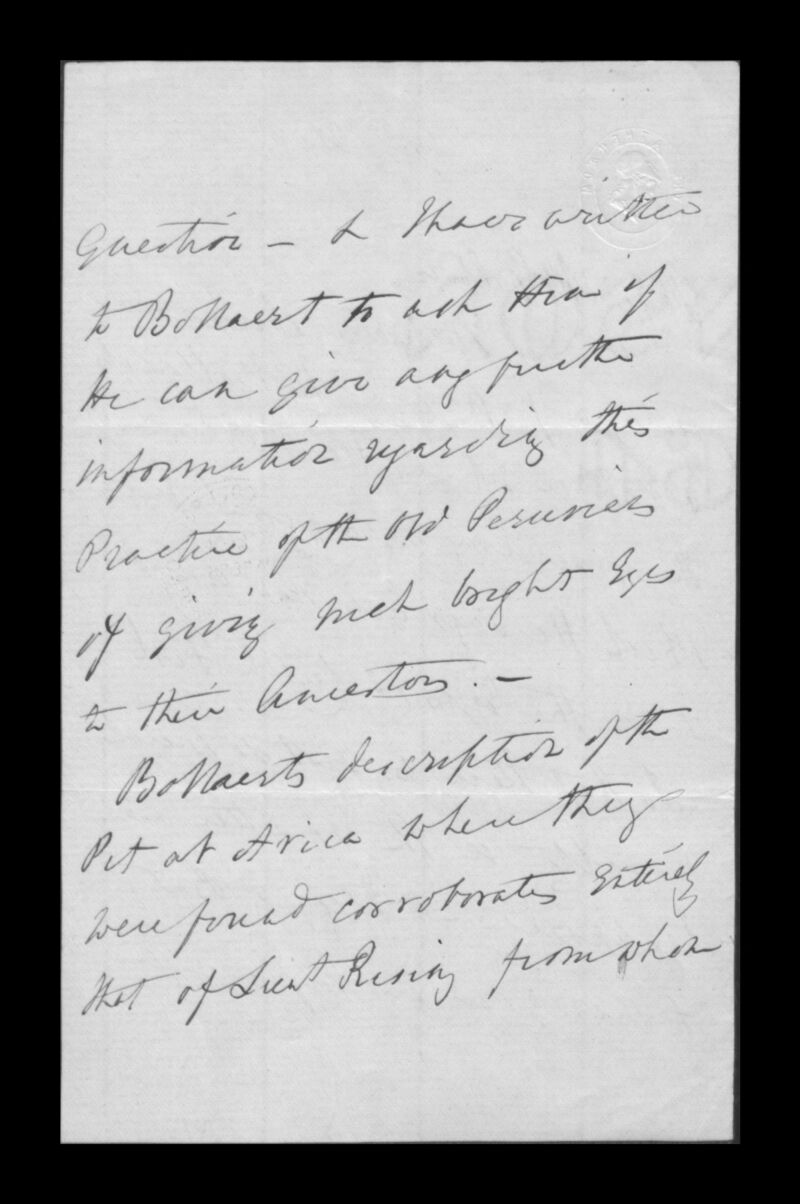 Question – & I have written
to Bollaert to ask Him if
He can give any further
information regarding this
Practice of the Old Peruvians
of giving such bright Eyes
to their Ancestors. –
Bollaerts description of the
Pit at Arica where they
were found corroborates Entirely
that of Lieut Rising from whom